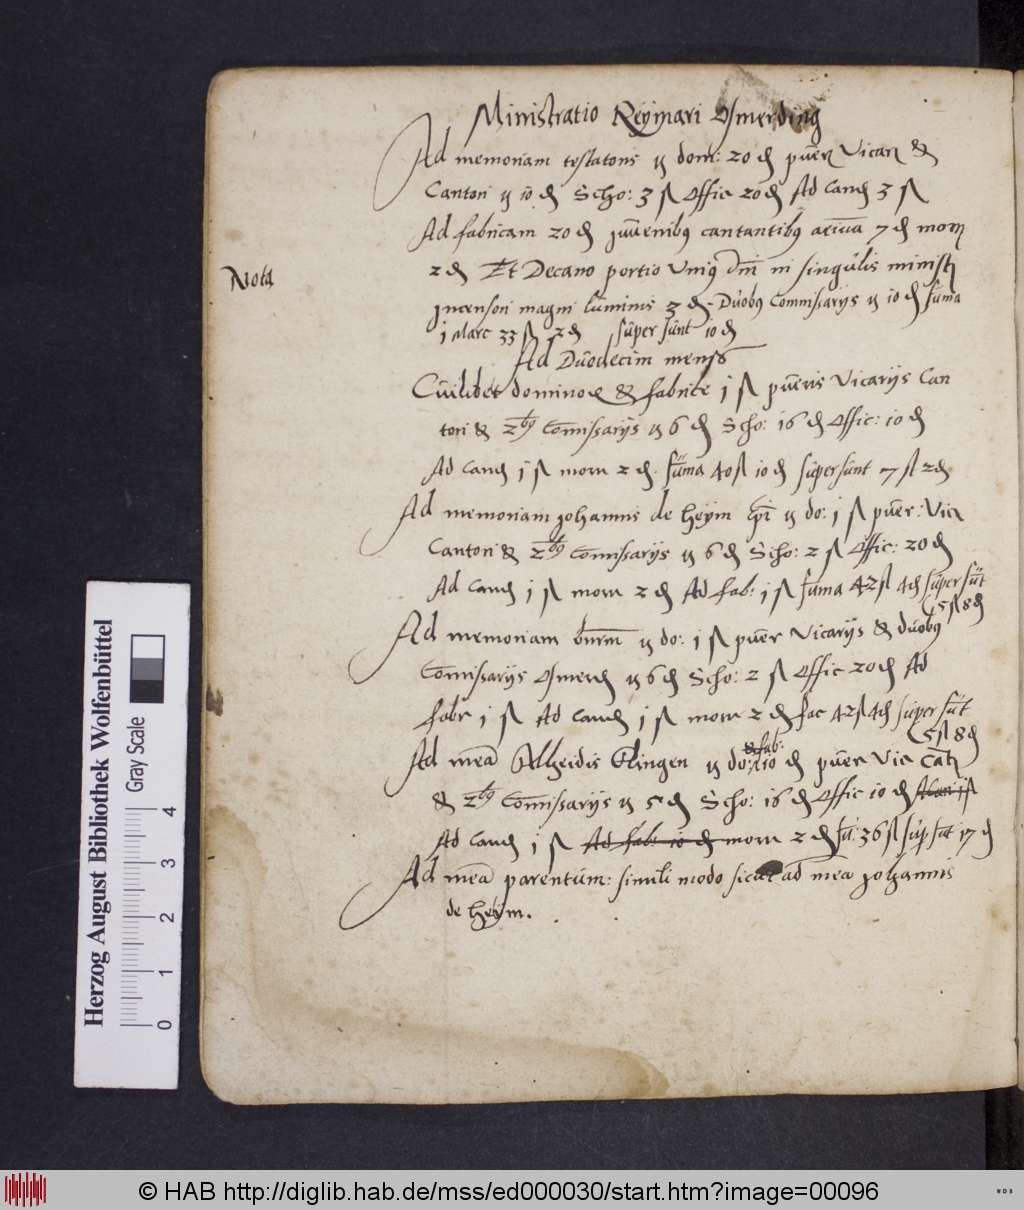 Ministratio Reymari Osmerding
Ad memoriam testatoris dom: 20 ₰ puer Vicar &
Cantori 10 ₰ Scho: 3 ß Offic 20 ₰ Ad Cand 3 ß
Ad fabricam 20 ₰ juvenibus cantantibus 7 ₰ mon
2 ₰ Et Decano portio Unius dni in singulis minist
Nota
incensori magni luminis 3 ₰. Duobus Commissariis 10 ₰ suma
1 Marc 33 ß 2 ₰ super sunt 10 ₰
Ad Duodecim mens
Cuilibet dominor & fabrice 1 ß pueris Vicariis Can
tori & 2bus Comissariis 6 ₰ Scho: 16 ₰ Offic: 10 ₰
Ad Cand 1 ß 2 ₰. suma 40 ß 10 ₰ supersunt 7 ß 2 ₰
Ad memoriam Johannis de Heym do: 1 ß puer: Vic
Cantori & 2bus Comissariis 6 ₰ Scho: 2 ß Offic: 20 ₰
Ad Cand 1 ß 2 ₰ Ad fab: 1 ß suma 42 ß 4 ₰ super sut
5 ß 8 ₰
Ad memoriam do: 1 ß puer Vicariis & duobus
Comissariis Osmerd 6 ₰ Scho: 2 ß Offic 20 ₰ Ad
fabr 1 ß Ad Cand 1 ß 2 ₰ fac 42 ß 4 ₰ super sut
5 ß 8 ₰
& fab:
Ad meã Alheidis Klingen do: 10 ₰ puer Vic Cat
& 2bus Comissariis 5 ₰ Scho: 16 ₰ Offic 10 ₰
Ad Cand 1 ß Ad fab: 10 ₰ 2 ₰ su: 36 ß sup sut 17 ₰
Ad meã parentum: simili modo sicut ad mea Johannis
de Heym.
Herzog August Bibliothek Wolfenbüttel
Gray Scale
0 1 2 3 4
© HAB http://diglib.hab.de/mss/ed000030/start.htm?image=00096
WDB